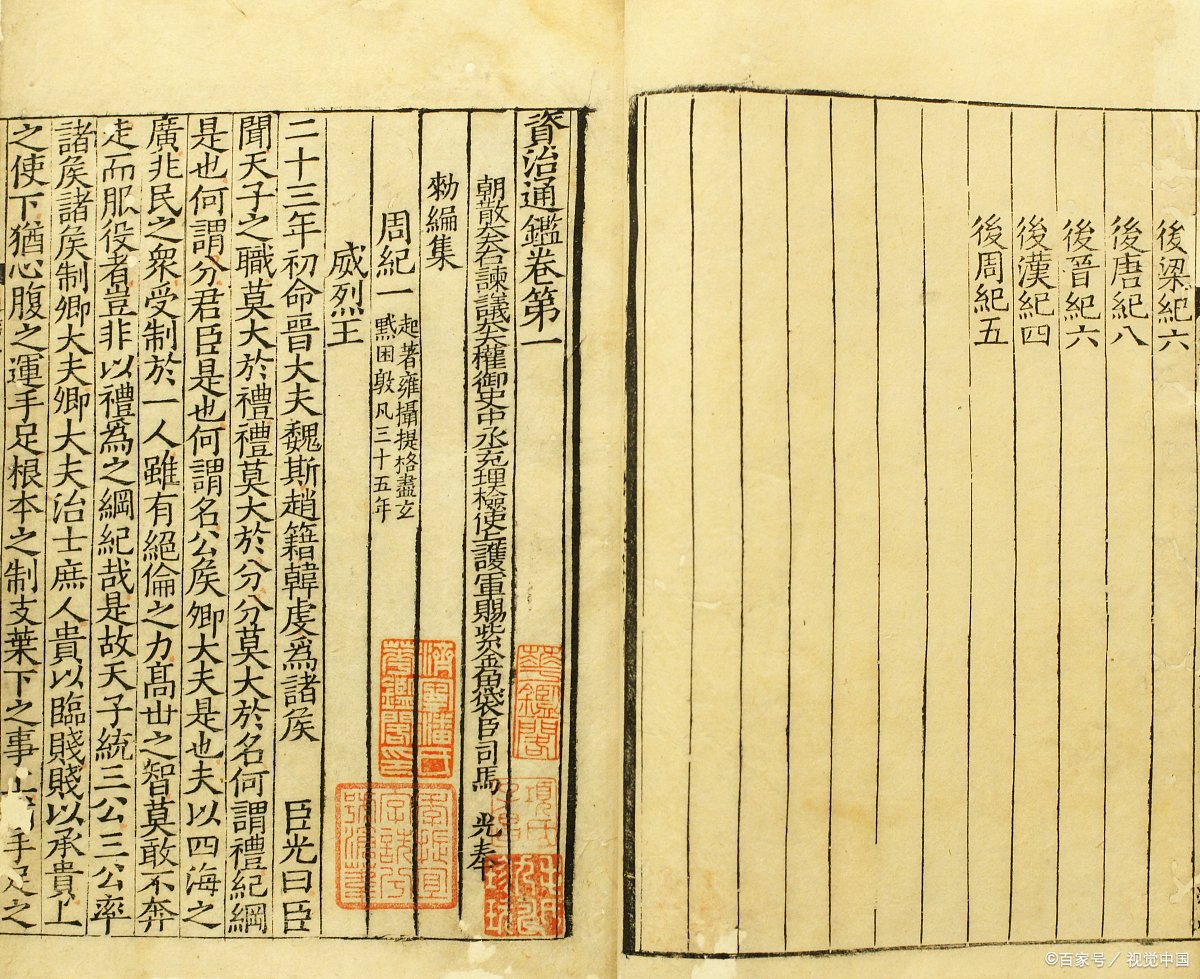 後梁紀六
後唐紀八
後晉紀六
後漢紀四
後周紀五
資治通鑑卷第一
朝散大夫右諫議大夫權御史中丞充理檢使上護軍賜紫金魚袋臣司馬 光奉
勑編集
周紀一 起著雍攝提格盡玄
黓困敦凡三十五年
威烈王
二十三年初命晉大夫魏斯趙籍韓虔爲諸侯 臣光曰臣
聞天子之職莫大於禮禮莫大於分分莫大於名何謂禮紀綱
是也何謂分君臣是也何謂名公侯卿大夫是也夫以四海之
廣非民之衆受制於一人雖有絕倫之力高世之智莫敢不奔
走而服役者豈非以禮爲之綱紀哉是故天子統三公三公率
諸侯諸侯制卿大夫卿大夫治士庶人貴以臨賤賤以承貴上
之使下猶心腹之運手足根本之制支葉下之事上 手足之
華鑑閣
©百家号／视觉中国